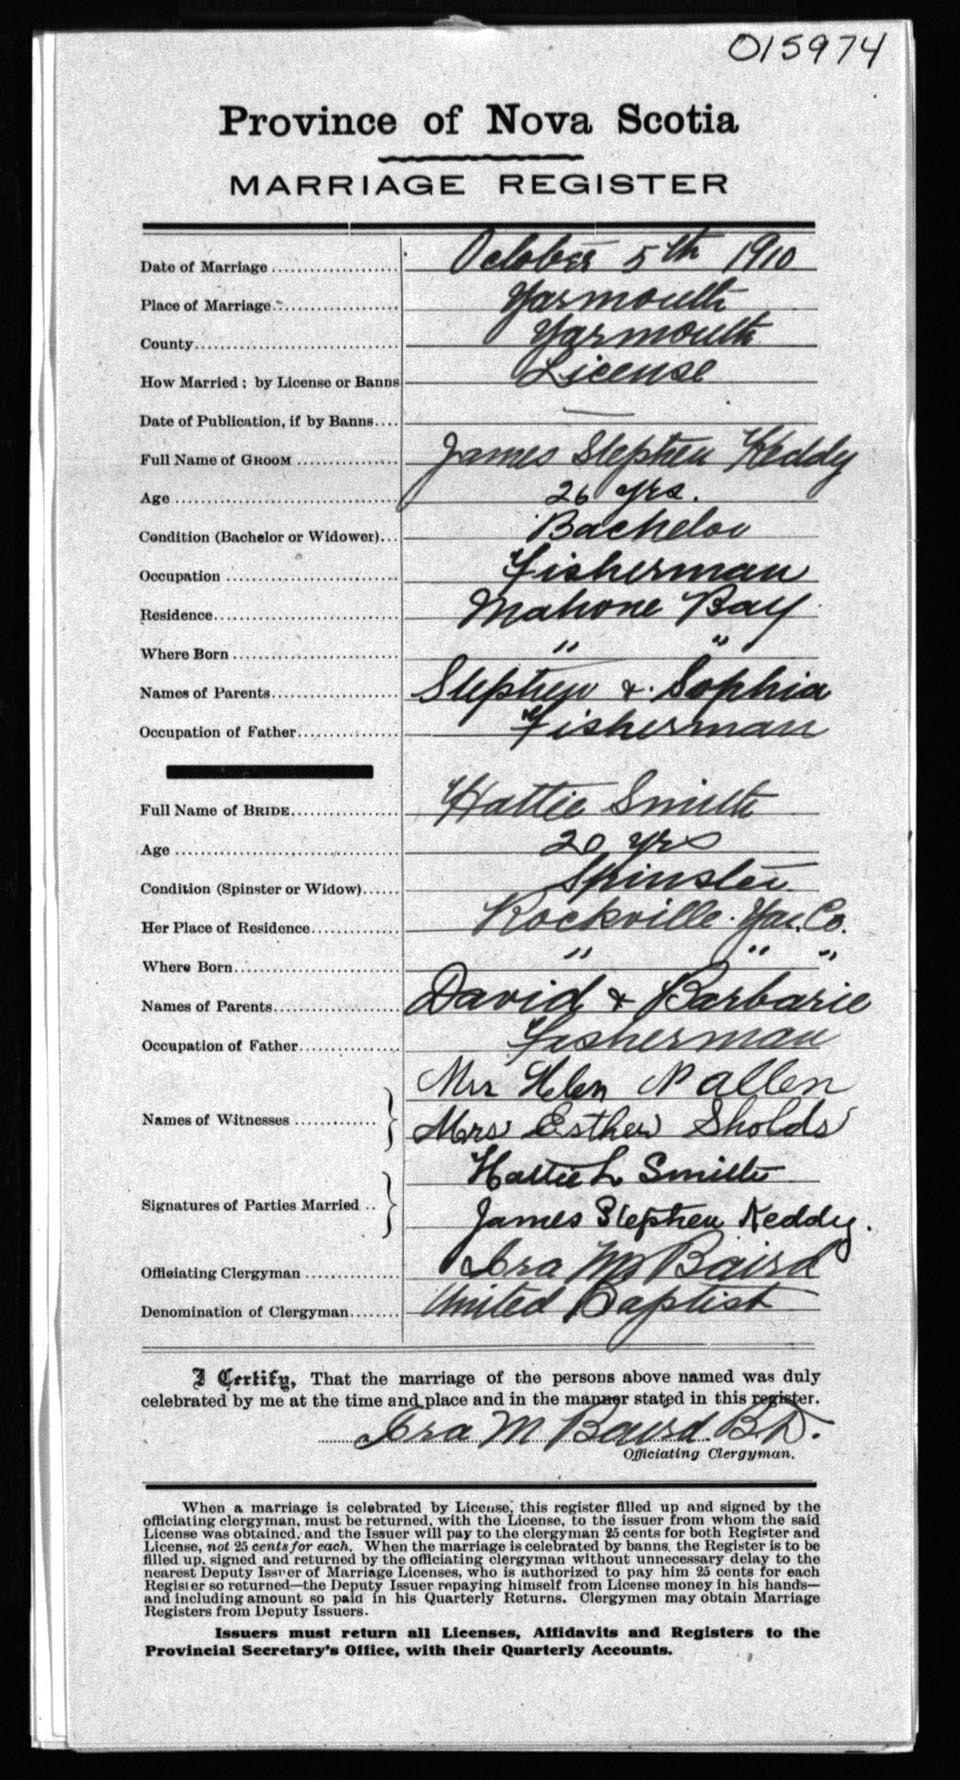 015974
Province of Nova Scotia
MARRIAGE REGISTER
Date of Marriage .................... October 5th 1910
Place of Marriage.................... Yarmouth
County.................... Yarmouth
How Married : by License or Banns License
Date of Publication, if by Banns.... —
Full Name of GROOM .................... James Stephen Keddy
Age .................... 26 yrs.
Condition (Bachelor or Widower)... Bachelor
Occupation .................... Fisherman
Residence.................... Mahone Bay
Where Born .................... " "
Names of Parents.................... Stephen & Sophia
Occupation of Father.................... Fisherman
Full Name of BRIDE.................... Hattie Smith
Age .................... 20 yrs
Condition (Spinster or Widow)...... Spinster
Her Place of Residence.................... Rockville Yar. Co.
Where Born.................... " " "
Names of Parents.................... David & Barbarie
Occupation of Father.................... Fisherman
Mrs Helen N Allen
Names of Witnesses ............. Mrs Esther Sholds
Hattie L Smith
Signatures of Parties Married .. James Stephen Keddy.
Officiating Clergyman .............. Ira M Baird
Denomination of Clergyman........ United Baptist
I Certify, That the marriage of the persons above named was duly
celebrated by me at the time and place and in the manner stated in this register.
Ira M Baird. B.D.
Officiating Clergyman.
When a marriage is celebrated by License, this register filled up and signed by the
officiating clergyman, must be returned, with the License, to the issuer from whom the said
License was obtained, and the Issuer will pay to the clergyman 25 cents for both Register and
License, not 25 cents for each. When the marriage is celebrated by banns, the Register is to be
filled up, signed and returned by the officiating clergyman without unnecessary delay to the
nearest Deputy Issuer of Marriage Licenses, who is authorized to pay him 25 cents for each
Register so returned—the Deputy Issuer repaying himself from License money in his hands—
and including amount so paid in his Quarterly Returns. Clergymen may obtain Marriage
Registers from Deputy Issuers.
Issuers must return all Licenses, Affidavits and Registers to the
Provincial Secretary's Office, with their Quarterly Accounts.